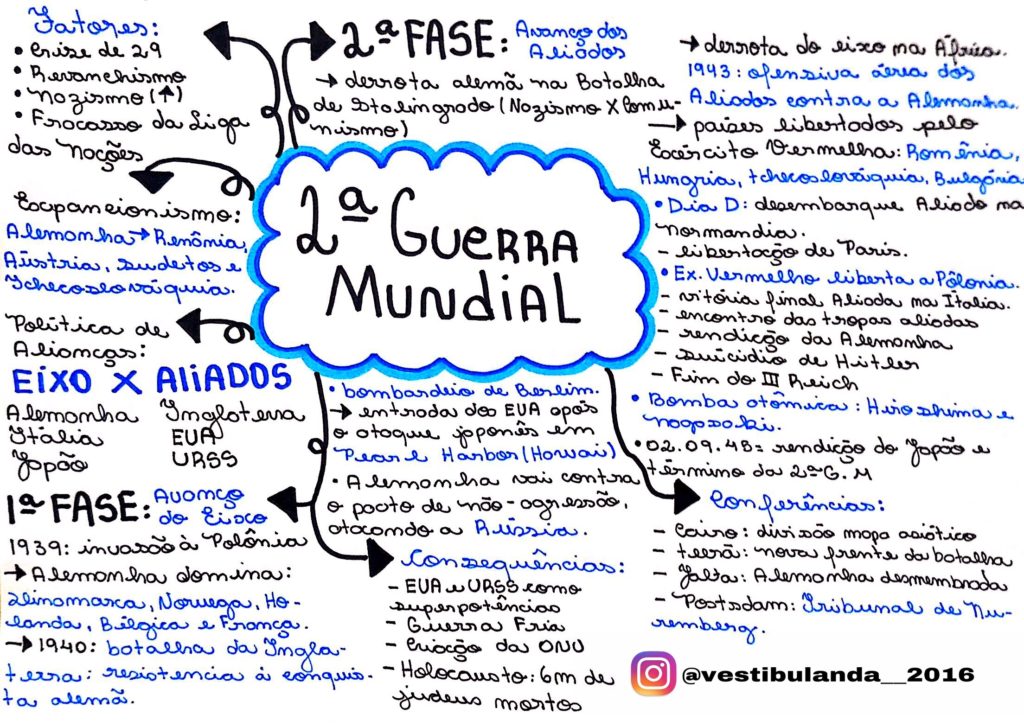 2ª GUERRA
MUNDIAL
Fatores:
• Crise de 29
• Revanchismo
• Nazismo (↑)
• Fracasso da Liga
das Nações
Expansionismo:
Alemanha → Renânia,
Áustria, Sudetos e
Tchecoslováquia.
Política de
Alianças:
EIXO X ALIADOS
Alemanha Inglaterra
Itália EUA
Japão URSS
1ª FASE: Avanço
do Eixo
1939: invasão à Polônia
→ Alemanha domina:
Dinamarca, Noruega, Ho-
landa, Bélgica e França.
→ 1940: batalha da Ingla-
terra: resistencia à conquis-
ta alemã.
• bombardeio de Berlim.
→ entrada dos EUA após
o ataque japonês em
Pearl Harbor (Hawai)
• Alemanha vai contra
o pacto de não-agressão,
atacando a Rússia.
2ª FASE: Avanço dos
Aliados
→ derrota alemã na Batalha
de Stalingrado (Nazismo X Comu-
nismo)
→ derrota do eixo na África.
1943: ofensiva áerea dos
Aliados contra a Alemanha.
→ países libertados pelo
Exército Vermelha: Romênia,
Hungria, tchecoslováquia, Bulgária
• Dia D: desembarque Aliado na
normandia.
- libertação de Paris.
• Ex. Vermelho liberta a Pôlonia.
- vitória final Aliada na Itália.
- encontro das tropas aliadas
- rendicção da Alemanha
- suicídio de Hitler
- Fim do III Reich
• Bomba atômica: Hiroshima e
nagasaki.
• 02.09.45= rendição do Japão e
término da 2ª G.M
Consequências:
- EUA e URSS como
superpotências
- Guerra Fria
- Criação da ONU
- Holocausto: 6m de
judeus mortos
Conferências:
- Cairo: divisão mapa asiático
- teerã: nova frente da batalha
- Yalta: Alemanha desmembrada
- Postsdam: Tribunal de Nu-
remberg.
@vestibulanda__2016